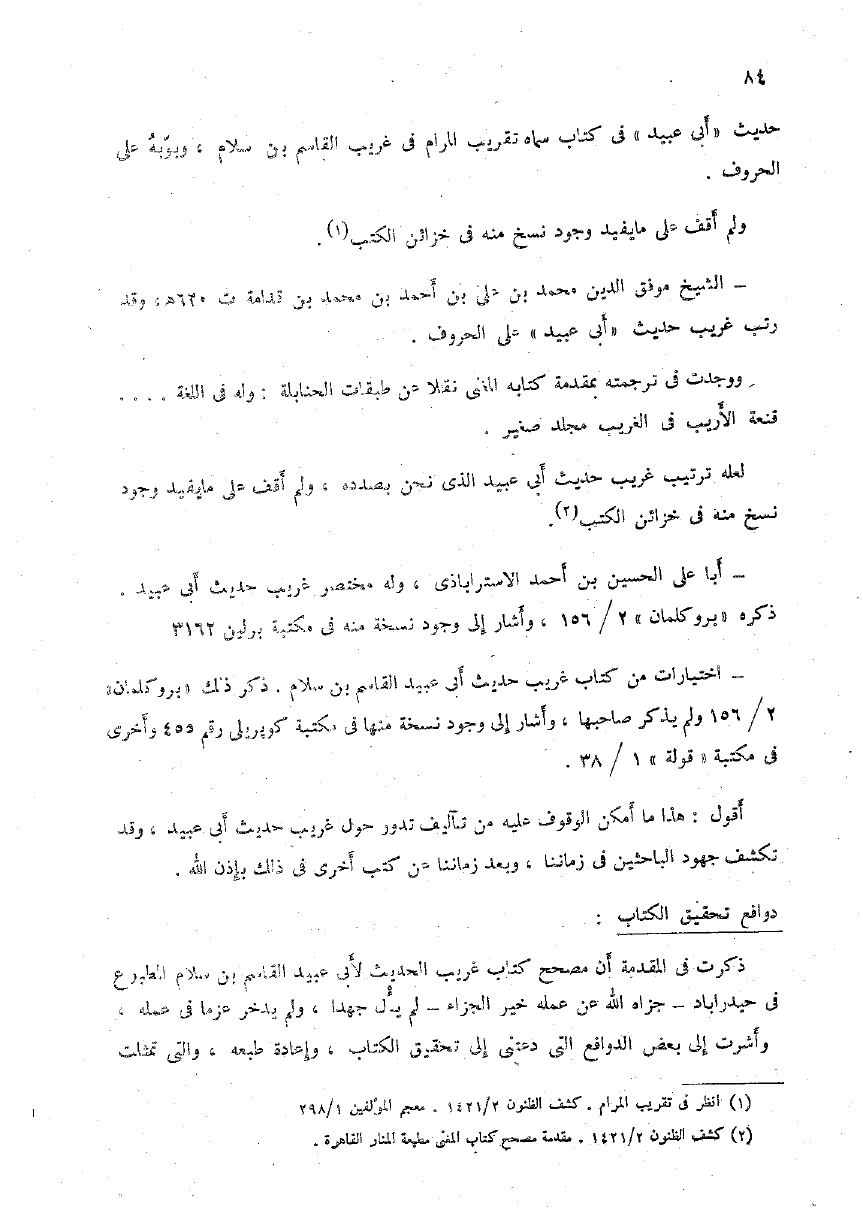 ٨٤
حديث «أبى عبيد» فى كتاب سماه تقريب المرام فى غريب القاسم بن سلام ، وبوّبهُ على
الحروف .
ولم أقف على مايفيد وجود نسخ منه فى خزائن الكتب(١).
– الشيخ موفق الدين محمد بن على بن أحمد بن محمد بن قدامة ت ٦٢٠ه، وقد
رتب غريب حديث «أبى عبيد» على الحروف .
ووجدت فى ترجمته بمقدمة كتابه المغنى نقلا عن طبقات الحنابلة : وله فى اللغة ....
قنعة الأريب فى الغريب مجلد صغير .
لعله ترتيب غريب حديث أبى عبيد الذى نحن بصدده ، ولم أقف على مايفيد وجود
نسخ منه فى خزائن الكتب(٢).
– أبا على الحسين بن أحمد الاستراباذى ، وله مختصر غريب حديث أبى عبيد .
ذكره «بروكلمان» ٢ / ١٥٦ ، وأشار إلى وجود نسخة منه فى مكتبة برلين ٣١٦٢
– اختيارات من كتاب غريب حديث أبى عبيد القاسم بن سلام . ذكر ذلك «بروكلمان»
٢ / ١٥٦ ولم يذكر صاحبها ، وأشار إلى وجود نسخة منها فى مكتبة كوبريلى رقم ٤٥٥ وأخرى
فى مكتبة « قولة » ١ / ٣٨ .
أقول : هذا ما أمكن الوقوف عليه من تآليف تدور حول غريب حديث أبى عبيد ، وقد
تكشف جهود الباحثين فى زماننا ، وبعد زماننا عن كتب أخرى فى ذلك بإذن الله .
دوافع تحقيق الكتاب :
ذكرت فى المقدمة أن مصحح كتاب غريب الحديث لأبى عبيد القاسم بن سلام المطبوع
فى حيدراباد – جزاه الله عن عمله خير الجزاء – لم يألُ جهدا ، ولم يدخر عزما فى عمله ،
وأشرت إلى بعض الدوافع التى دعتنى إلى تحقيق الكتاب ، وإعادة طبعه ، والتى تمثلت
(١) انظر فى تقريب المرام . كشف الظنون ١٤٢١/٢ . معجم المؤلفين ٢٩٨/١
(٢) كشف الظنون ١٤٢١/٢ . مقدمة مصحح كتاب المغنى مطبعة المنار القاهرة .